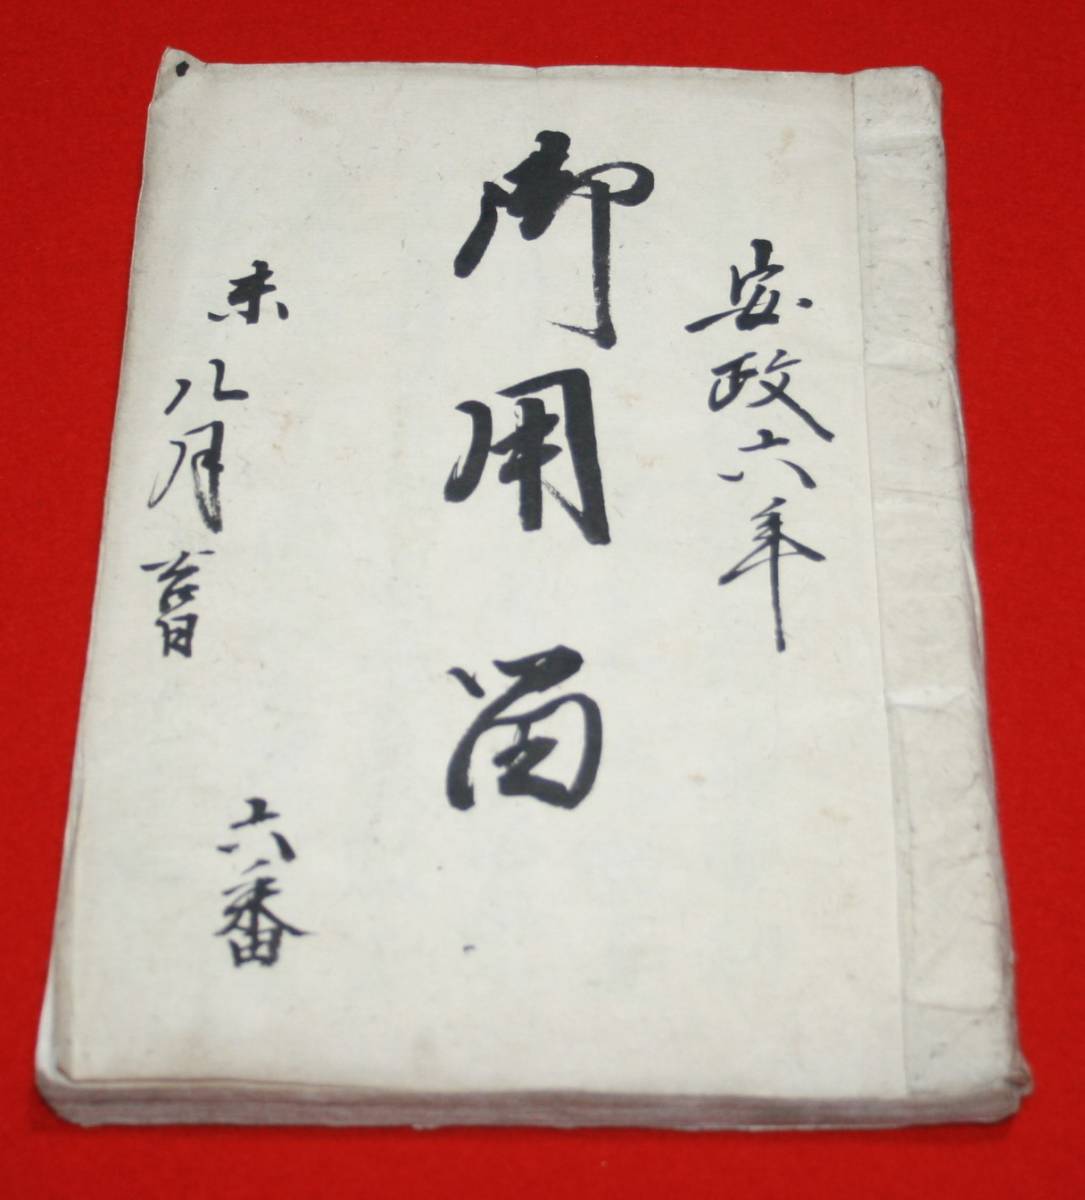 安政六年
御用留
未八月吉日
六番